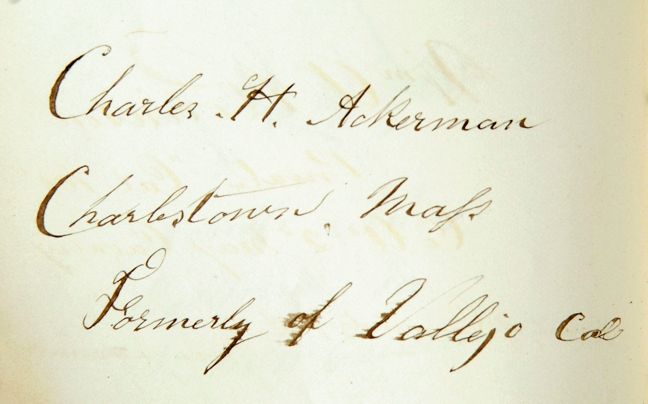 Charles. H. Ackerman
Charlestown, Mass
Formerly of Vallejo Cal